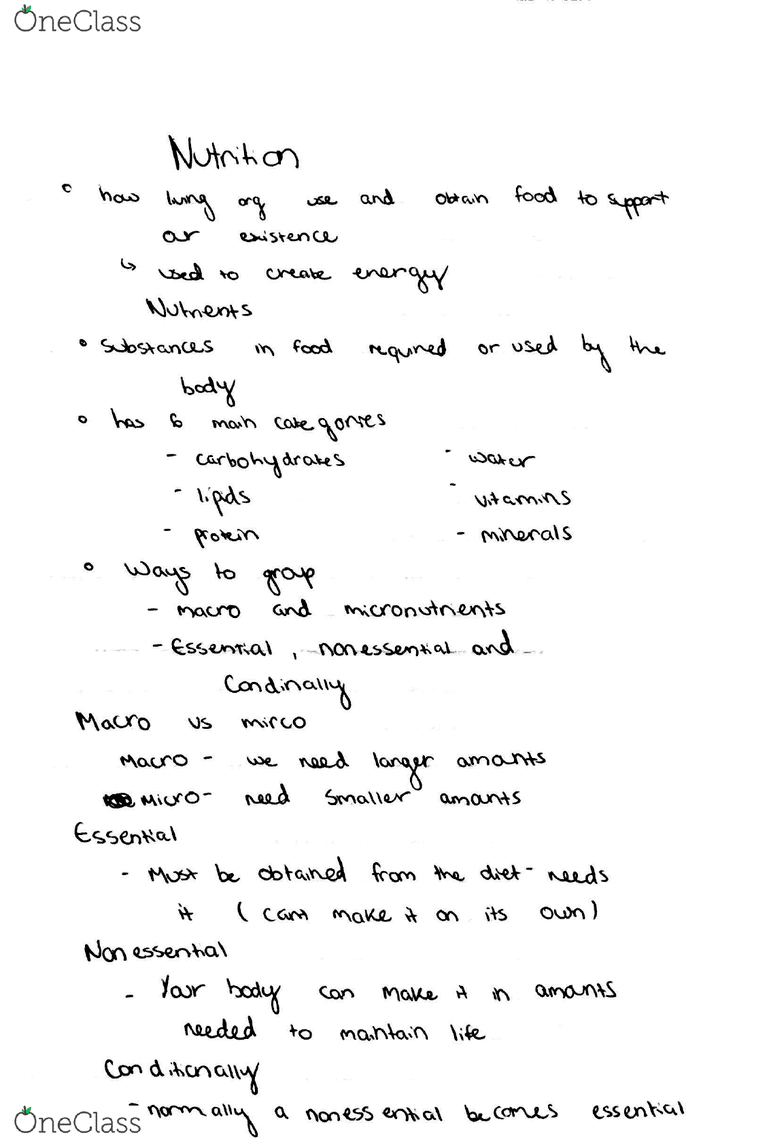 OneClass
Nutrition
how living org use and obtain food to support
our existence
↳ used to create energy
Nutrients
• substances in food required or used by the
body
• has 6 main categories
- carbohydrates - water
- lipids - vitamins
- protein - minerals
• Ways to group
- macro and micronutrients
- Essential, nonessential and
Condinally
Macro vs mirco
Macro - we need larger amants
Micro - need smaller amants
Essential
- Must be obtained from the diet - needs
it (cant make it on its own)
Non essential
- Your body can make it in amants
needed to maintain life
Conditionally
- normally a noness ential becomes essential
OneClass